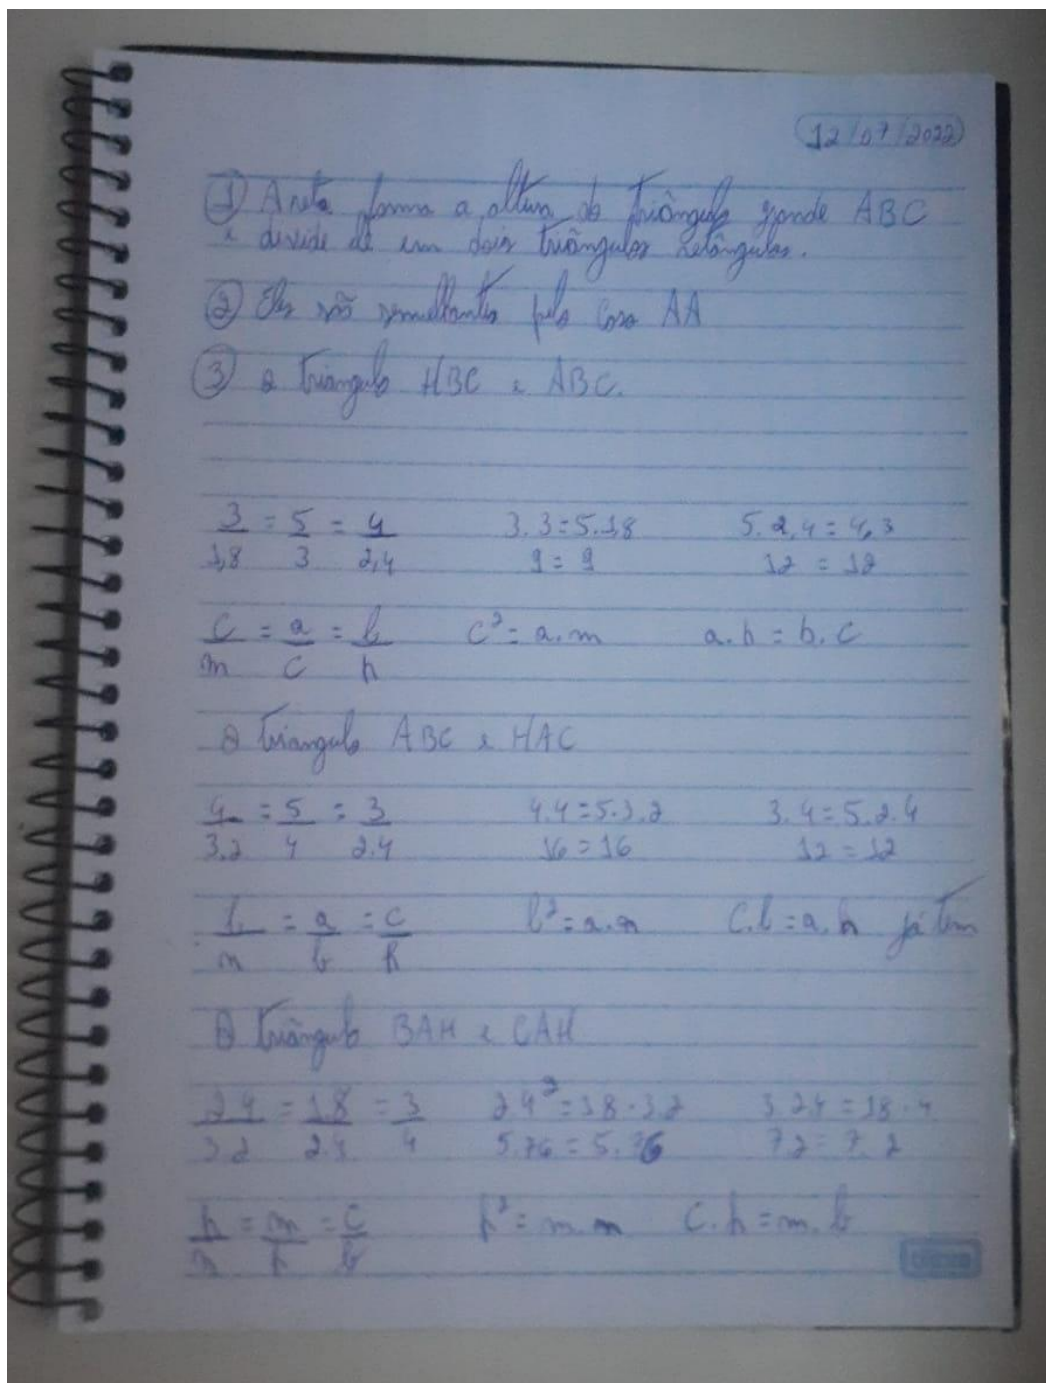 12/07/2022
① A reta forma a altura do triângulo grande ABC
e divide ele em dois triângulos retângulos.
② Eles são semelhantes pelo caso AA
③ o triangulo HBC e ABC.
3/1,8 = 5/3 = 4/2,4 3.3=5.1,8 5.2,4=4,3
9=9 12=12
c/m = a/c = b/h c²=a.m a.h=b.c
o triangulo ABC e HAC
4/3.2 = 5/4 = 3/2.4 4.4=5.3.2 3.4=5.2.4
16=16 12=12
b/n = a/b = c/h b²=a.n c.b=a.h já tem
o triângulo BAH e CAH
2.4/3.2 = 1.8/2.4 = 3/4 2.4²=1.8.3.2 3.2.4=1.8.4
5.76=5.76 7.2=7.2
h/n = m/h = c/b h²=m.n c.h=m.b